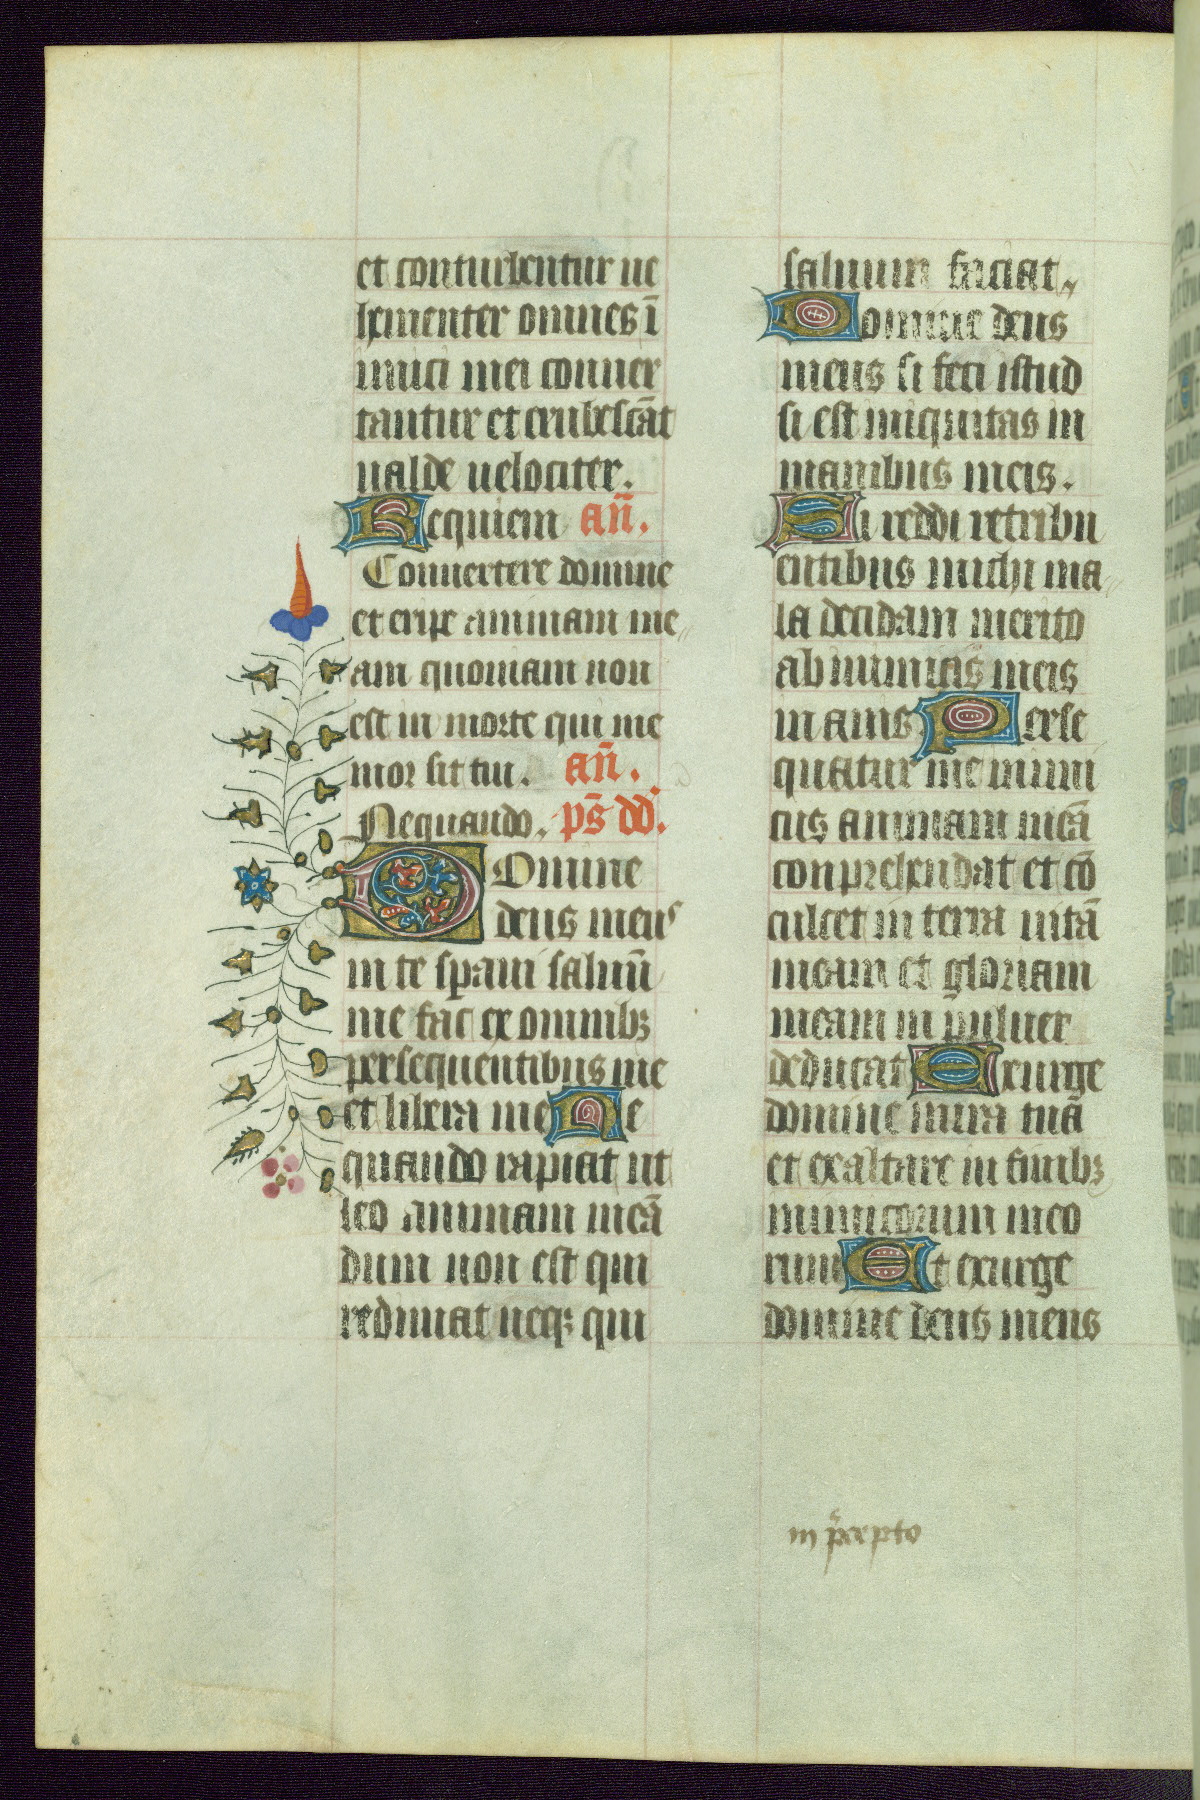 et conturbentur ue
hementer omnes ī
imici mei conuer
tantur et erubescāt
ualde uelociter.
Requiem an̄.
Conuertere domine
et eripe animam me
am quoniam non
est in morte qui me
mor sit tui. an̄.
Nequando. ps̄ dd.
Domine
deus meus
in te speraui saluū
me fac ex omnibꝫ
persequentibus me
et libera me Ne
quando rapiat ut
leo animam meā
dum non est qui
redimat neqꝫ qui
saluum faciat
Domine deus
meus si feci istud
si est iniquitas in
manibus meis.
Si reddi retribu
entibus michi ma
la decidam merito
ab inimicis meis
inanis Perse
quatur me inimi
cus animam meā
conprehendat et cō
culcet in terra uitā
meam et gloriam
meam in puluer
deducat Exurge
domine in ira tuā
et exaltare in finibꝫ
inimicorum meo
rum Et exurge
domine deus meus
in p̄cepto